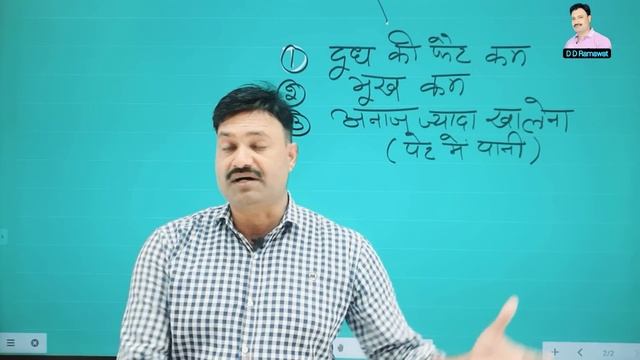 ① दूध की फैट कम
② भूख कम
③ अनाज ज्यादा खा लेना
(पेट मे पानी)
D D Ramawat
2/2